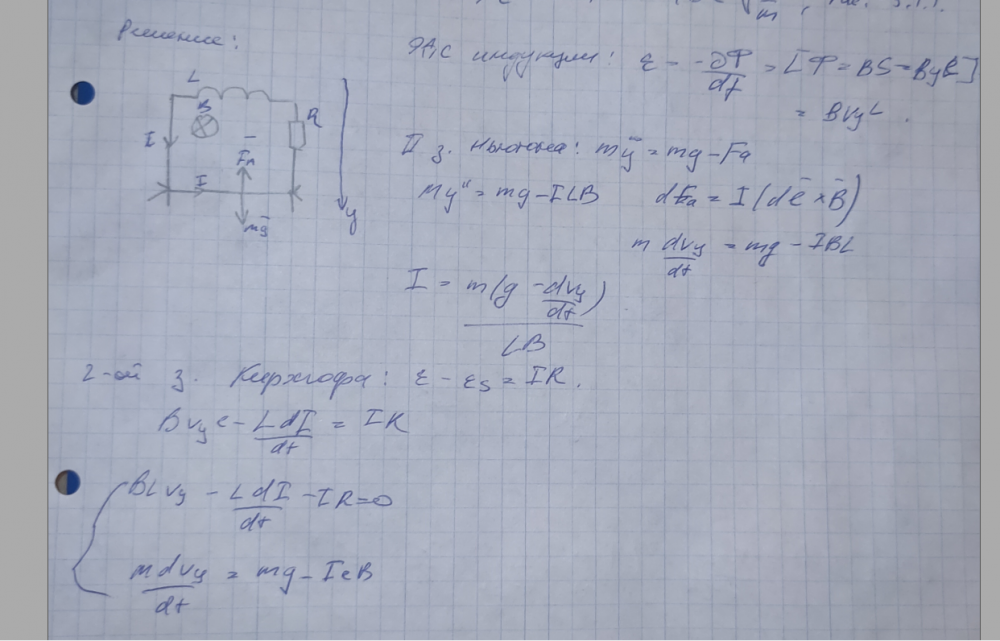 m , рис. 3.1.1.
Решение:
ЭДС индукции: ε = -dΦ/dt = [Φ = BS = Byℓ]
= BvyL .
L
B
R
I
I
FA
mg
y
II з. Ньютона: mÿ = mg - Fa
my'' = mg - ILB dFa = I(dℓ × B)
m dvy/dt = mg - IBL
I = m(g - dvy/dt) / LB
2-ой з. Кирхгофа: ε - εs = IR.
Bvyℓ - LdI/dt = IR
BLvy - LdI/dt - IR = 0
mdvy/dt = mg - IℓB